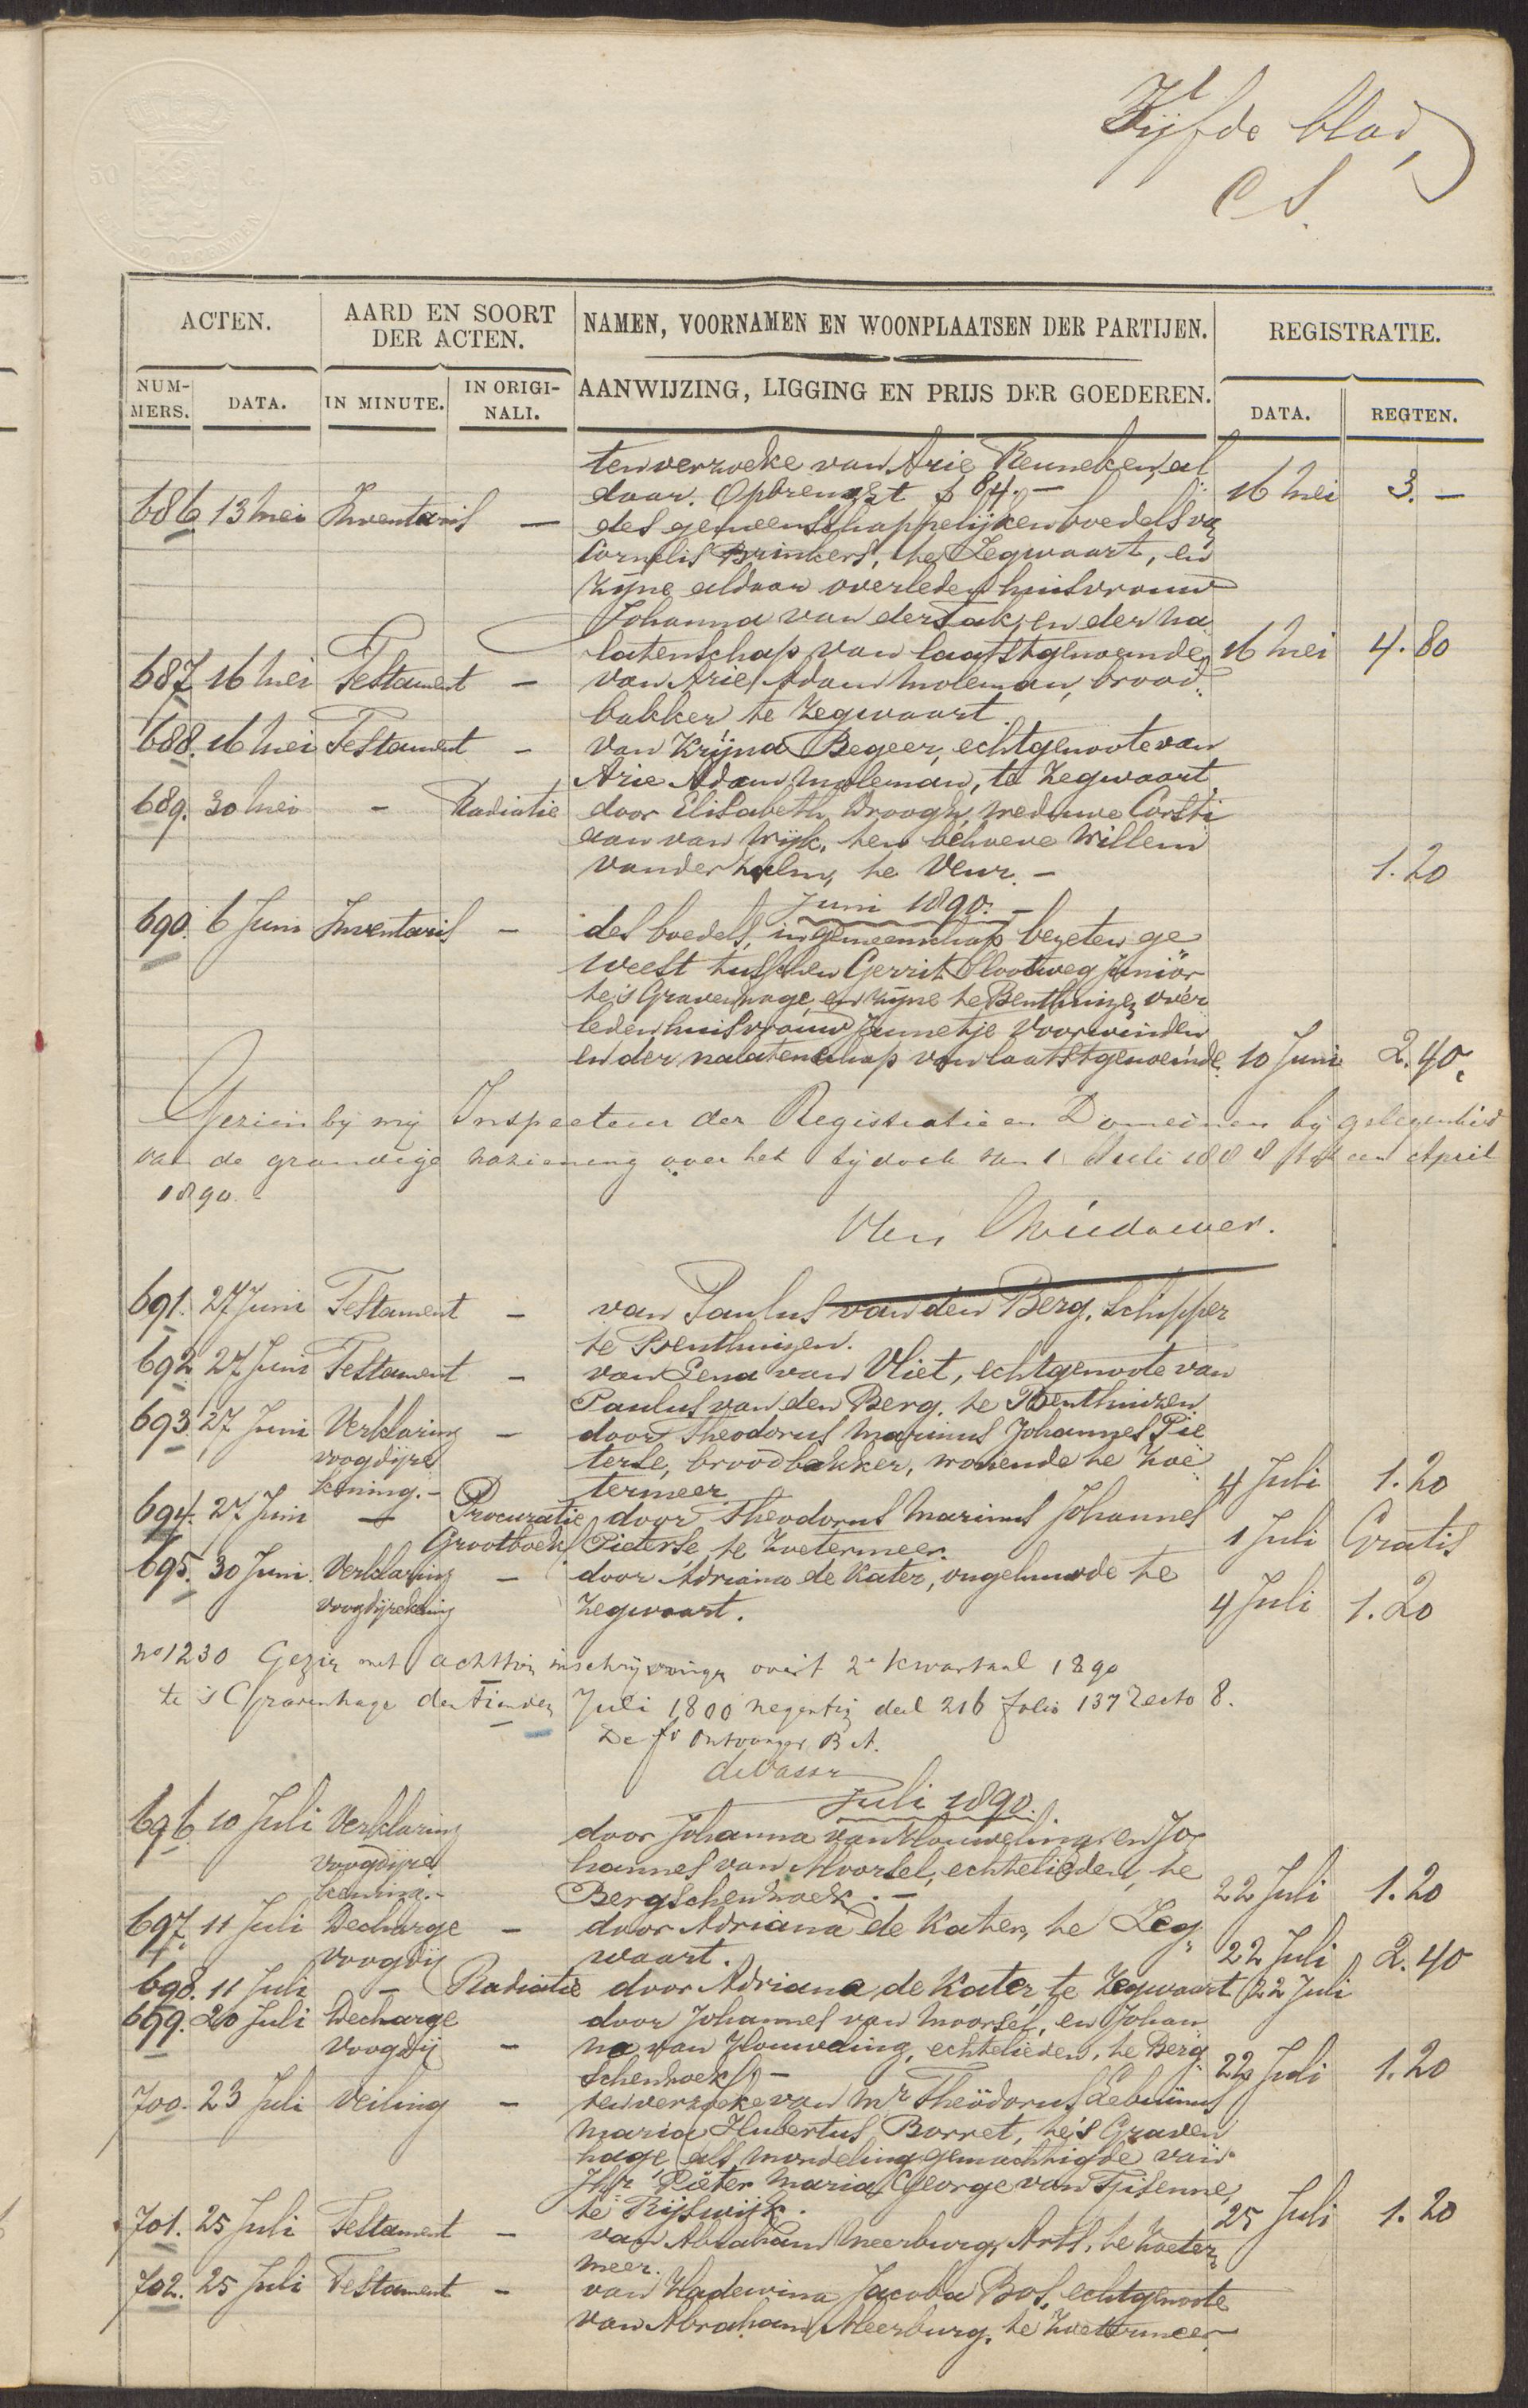 Vijfde blad
CS.
ACTEN.
AARD EN SOORT
DER ACTEN.
NAMEN, VOORNAMEN EN WOONPLAATSEN DER PARTIJEN.
REGISTRATIE.
NUM-
MERS.
DATA.
IN MINUTE.
IN ORIGI-
NALI.
AANWIJZING, LIGGING EN PRIJS DER GOEDEREN.
DATA.
REGTEN.
ten verzoeke van Arie Renneken, al
daar. Opbrengst f 84.- 16 Mei 3.-
686 13 Mei Inventaris - des gemeenschappelijken boedels van
Cornelis Brinkers, te Zegwaart, en
zijne aldaar overleden huisvrouw
Johanna van der Tak, en der na
latenschap van laatstgenoemde, 16 Mei 4.80
687 16 Mei Testament - van Arie Adam Moleman, brood-
bakker te Zegwaart.
688. 16 Mei Testament - van Krijna Begeer, echtgenoote van
Arie Adam Moleman, te Zegwaart.
689. 30 Mei - Radiatie door Elisabeth Droogh, weduwe Corsti
aan van Wijk, ten behoeve Willem
van der Helm, te Veur. - 1.20
Juni 1890. -
690. 6 Juni Inventaris - des boedels, in gemeenschap bezeten ge
weest tusschen Gerrit Slootweg Junior
te 's Gravenhage, en zijne te Benthuizen over
leden huisvrouw Jannetje Voorwinden
en der nalatenschap van laatstgenoemde. 10 Juni 2.40.
Gezien bij mij Inspecteur der Registratie en Domeinen bij gelegenheid
van de grondige naziening over het tijdvak van 1 Juli 1888 tot en April
1890.-
691. 27 Juni Testament - van Paulus van den Berg, Schipper
te Benthuizen.
692. 27 Juni Testament - van Lena van Vliet, echtgenoote van
Paulus van den Berg, te Benthuizen
693. 27 Juni Verklaring - door Theodorus Marinus Johannes Pie
voogdijre terse, broodbakker, wonende te Zoe
kening.- termeer 4 Juli 1.20
694. 27 Juni - Procuratie door Theodorus Marinus Johannes
Grootboek Pieterse te Zoetermeer. 1 Juli Gratis
695. 30 Juni. Verklaring - door Adriana de Kater, ongehuwde te
voogdijrekening Zegwaart. 4 Juli 1.20
no 1230 Gezien met achttien inschrijvingen over 't 2e kwartaal 1890
te 's Gravenhage den tienden Juli 1800 negentig deel 216 folio 137 recto 8.
De fd Ontvanger B A.
Juli 1890.
696 10 Juli Verklaring door Johanna van Houweling, en Jo
voogdijre hannes van Moorsel, echtelieden, te
kening.- Bergschenhoek. - 22 Juli 1.20
697. 11 Juli Decharge - door Adriana de Kater, te Zeg
voogdij waart. 22 Juli 2.40
698. 11 Juli - Radiatie door Adriana de Kater, te Zegwaart 22 Juli
699. 20 Juli Decharge door Johannes van Moorsel, en Johan
voogdij - na van Houweling, echtelieden, te Berg
Schenhoek. - 22 Juli 1.20
700. 23 Juli Veiling - ten verzoeke van Mr Theodorus Lebuïnus
Maria Hubertus Borret, te 's Graven
hage, als mondeling gemachtigde van
Jhr Pieter Maria George van
te Rijswijk. 25 Juli 1.20
701. 25 Juli Testament - van Abraham Meerburg, Arts, te Zoeter
meer.
702. 25 Juli Testament - van Hadewina Jacoba Bos, echtgenoote
van Abraham Meerburg, te Zoetermeer